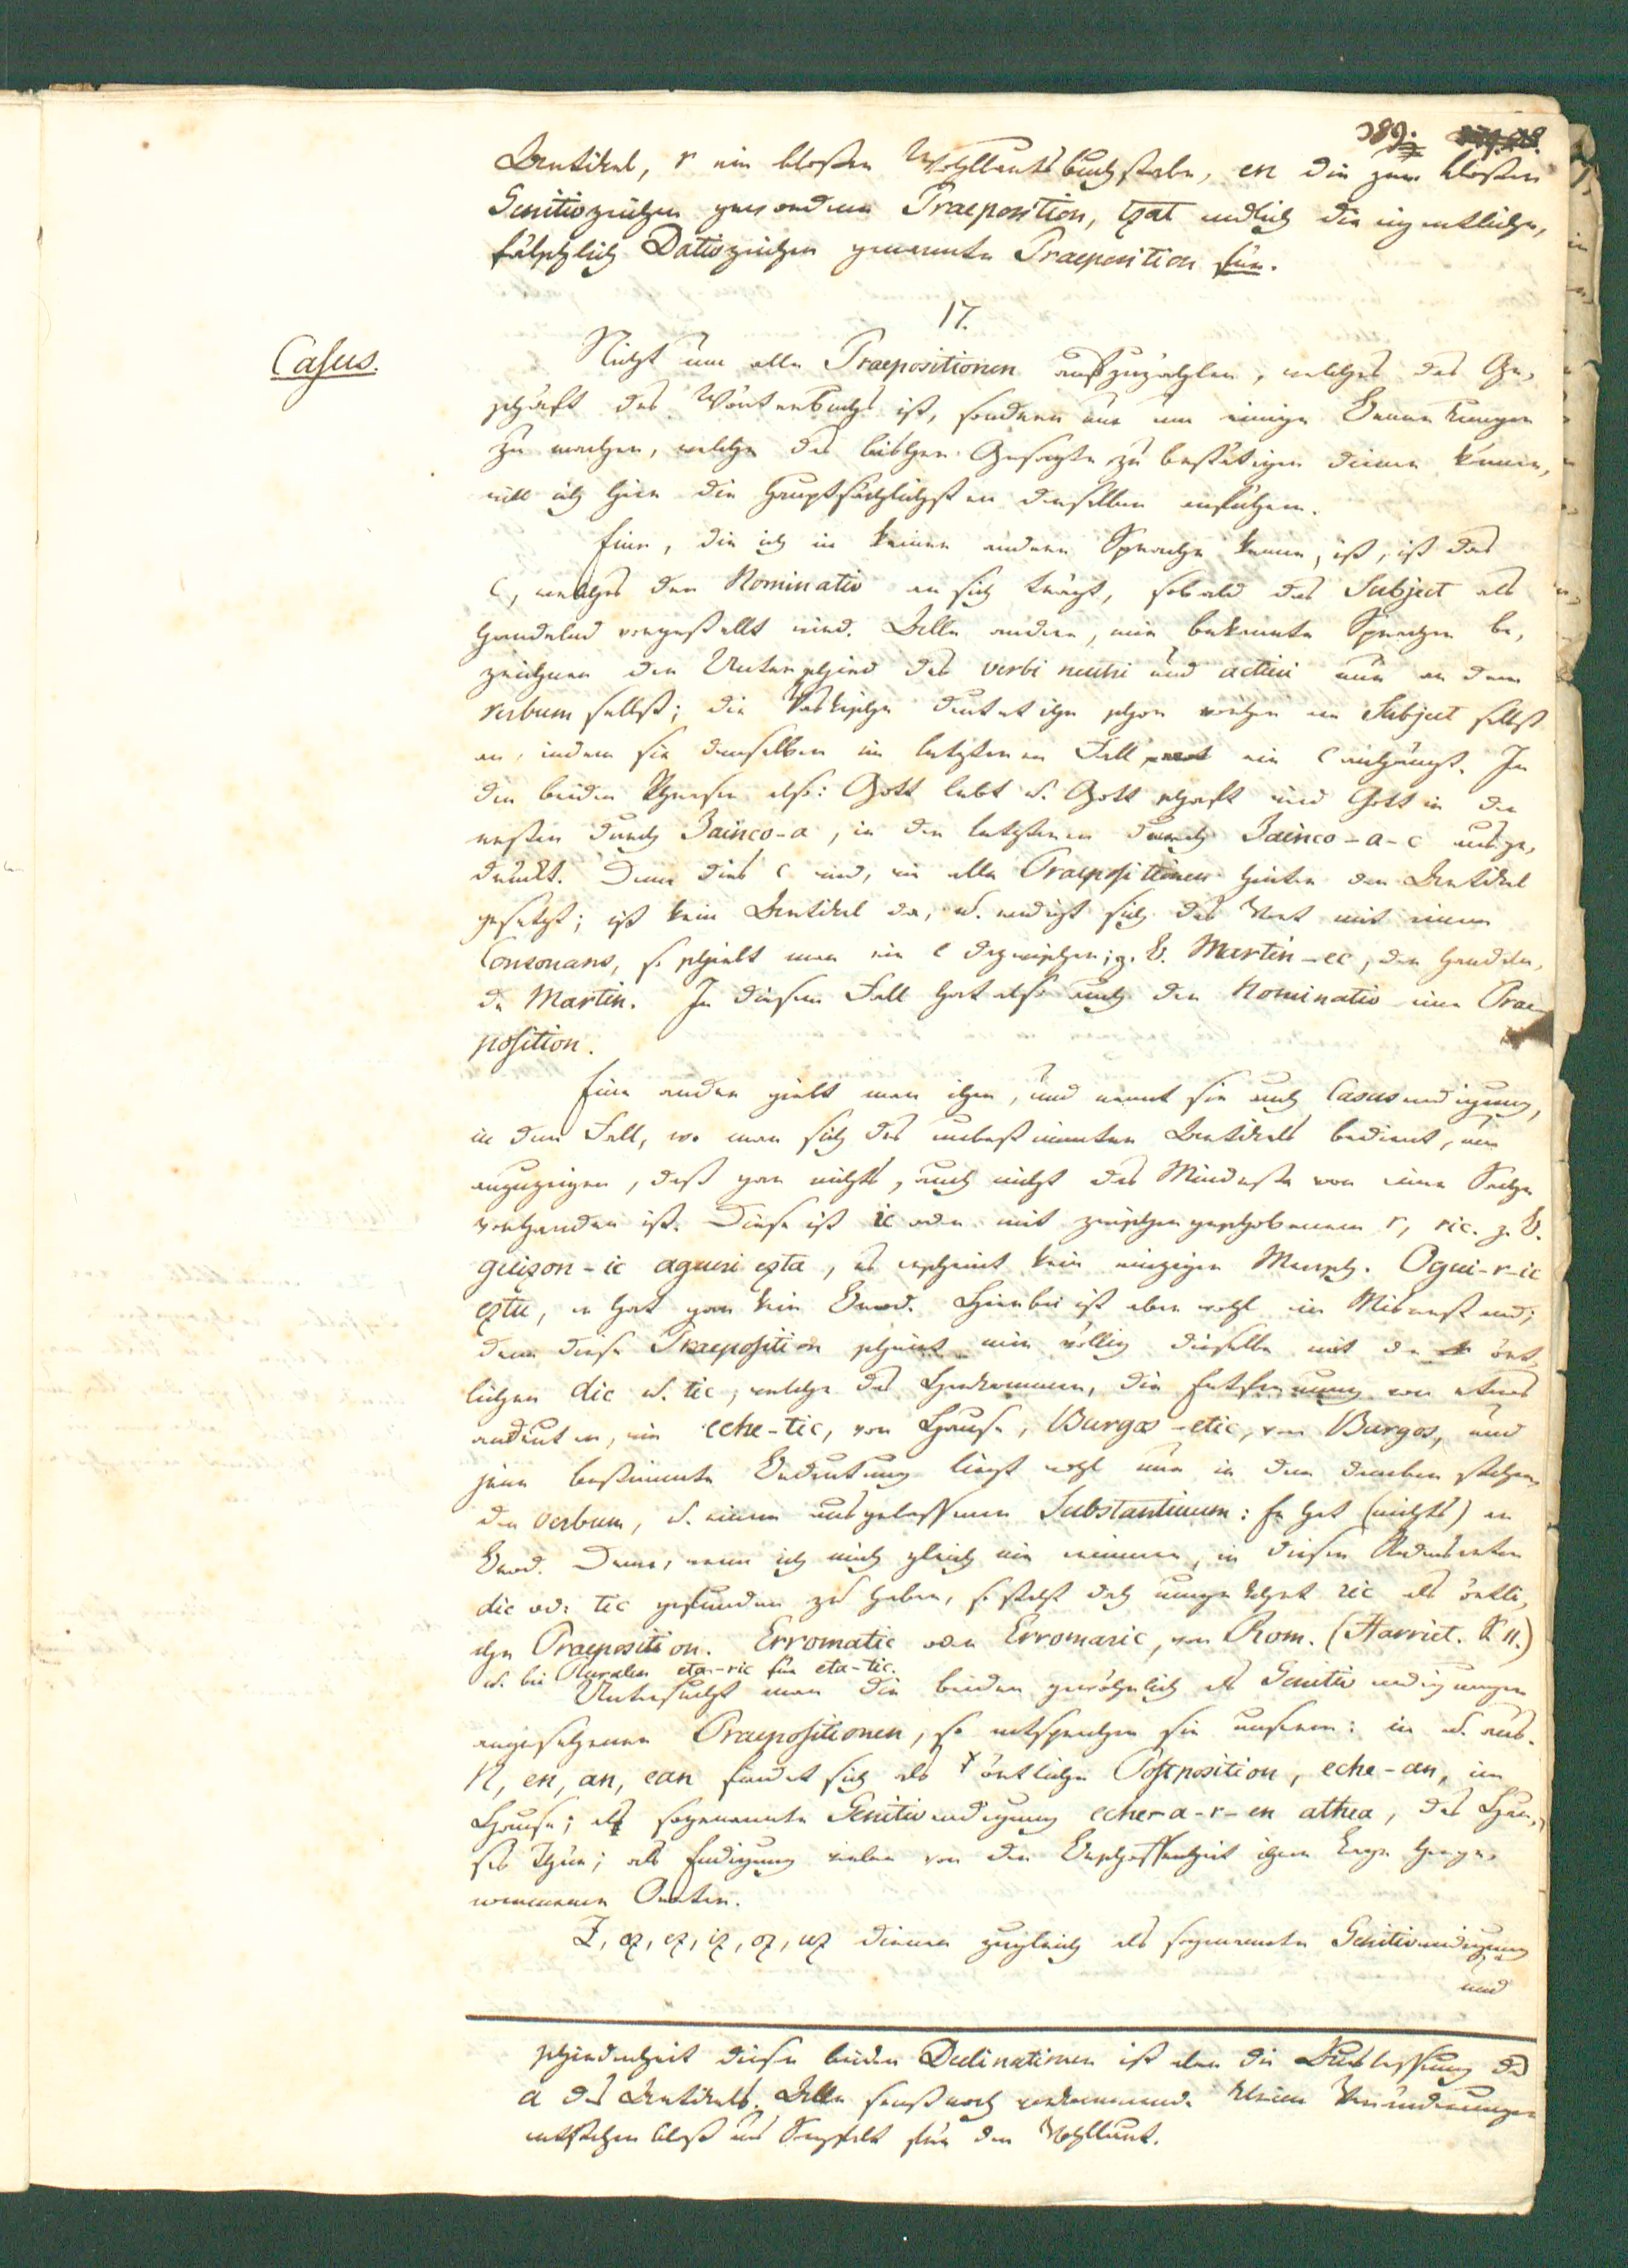 389.
Artikel, r ein bloßer Wohllautsbuchstabe, en die zum bloßen
Genitivzeichen gewordene Praeposition, tzat endlich die eigentliche,
fälschlich Dativzeichen genannte Praeposition für.
17.
Casus.
Nicht um alle Praepositionen aufzuzählen, welches das Ge-
schäft des Wörterbuchs ist, sondern nur um einige Bemerkungen
zu machen, welche das bisher Gesagte zu bestätigen dienen können,
will ich hier die hauptsächlichsten derselben anführen.
Eine, die ich in keiner andern Sprache kenne, ist, ist das
c, welches der Nominativ an sich trägt, sobald das Subject als
handelnd vorgestellt wird. Alle andern, mir bekannte Sprachen be-
zeichnen den Unterschied des verbi neutri und activi nur an dem
verbum selbst; die Vaskische deutet ihn schon vorher am Subject selbst
an, indem sie demselben im letzteren Fall ein c anhängt. In
den beiden Phrasen also: Gott lebt u. Gott schaft wird Gott in der
ersten durch Jainco-a, in der letzteren durch Jainco-a-c ausge-
drückt. Denn dies c wird, wie alle Praepositionen hinter den Artikel
gesetzt; ist kein Artikel da, u. endigt sich das Wort mit einem
Consonans, so schiebt man ein e dazwischen; z. B. Martin-ec, der handeln-
de Martin. In diesem Fall hat also auch der Nominativ eine Prae-
position.
Eine andre giebt man ihm, und nennt sie auch Casusendigung,
in dem Fall, wo man sich des unbestimmten Artikels bedient, um
anzuzeigen, daß gar nichts, auch nicht das Mindeste von einer Sache
vorhanden ist. Diese ist ic oder mit zwischengeschobenem r, ric. z. B.
guizon-ic agueri ezta, es erscheint kein einziger Mensch. Ogui-r-ic
eztu, er hat gar kein Brod. Hierbei ist aber wohl ein Misverstand;
denn diese Praeposition scheint mir völlig dieselbe mit der ört-
lichen dic u. tic, welche das Herkommen, die Entfernung von etwas
andeuten, wie eche-tic, von Hause, Burgos-etic, von Burgos, und
jene bestimmte Bedeutung liegt wohl nur in dem daneben stehen-
den verbum, u. einem ausgelassenen Substantivum: Er hat (nichts) an
Brod. Denn, wenn ich mich gleich nie erinnere, in diesen Redensarten
dic od: tic gefunden zu haben, so steht doch umgekehrt ric als örtli-
che Praeposition. Erromatic oder Erromaric, von Rom. (Harriet.
u. bei Pluralen eta-ric für eta-tic.
Untersucht man die beiden gewöhnlich als Genitivendigungen
angesehenen Praepositionen, so entsprechen sie unserm: in u. aus.
N, en, an, ean findet sich als örtliche Postposition, eche-an, im
Hause; als sogenannte Genitivendigung echer-a-r-en athea, des Hau-
ses Thür; als Endigung vieler von der Beschaffenheit ihrer Lage herge-
nommenen Oerter.
Z, az, ez, iz, oz, uz dienen zugleich als sogenannte Genitivendigung
und
schiedenheit dieser beiden Declinationen ist aber die Auslassung des
a des Artikels. Alle sonst noch vorkommende kleine Veränderungen
entstehen bloß aus Sorgfalt für den Wohllaut.